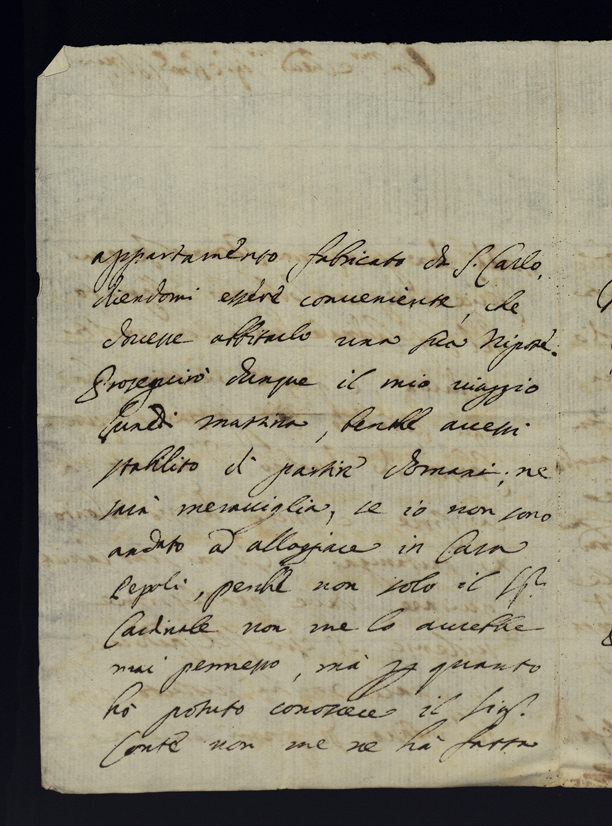 appartamento fabricato da S. Carlo,
diendomi essere conueniente, che
douesse abbitarlo una sua Nipote.
Proseguirò dunque il mio uiaggio
Lunedi mattina, benche auessi
stabilito di partire domani; ne
sarà merauiglia, se io non sono
andato ad alloggiare in Casa
Pepoli, perche non solo il Sig.r
Cardinale non me lo aurebbe
mai permesso, mà p quanto
hò potuto conoscere il Sig.r
Conte non me ne hà fatta